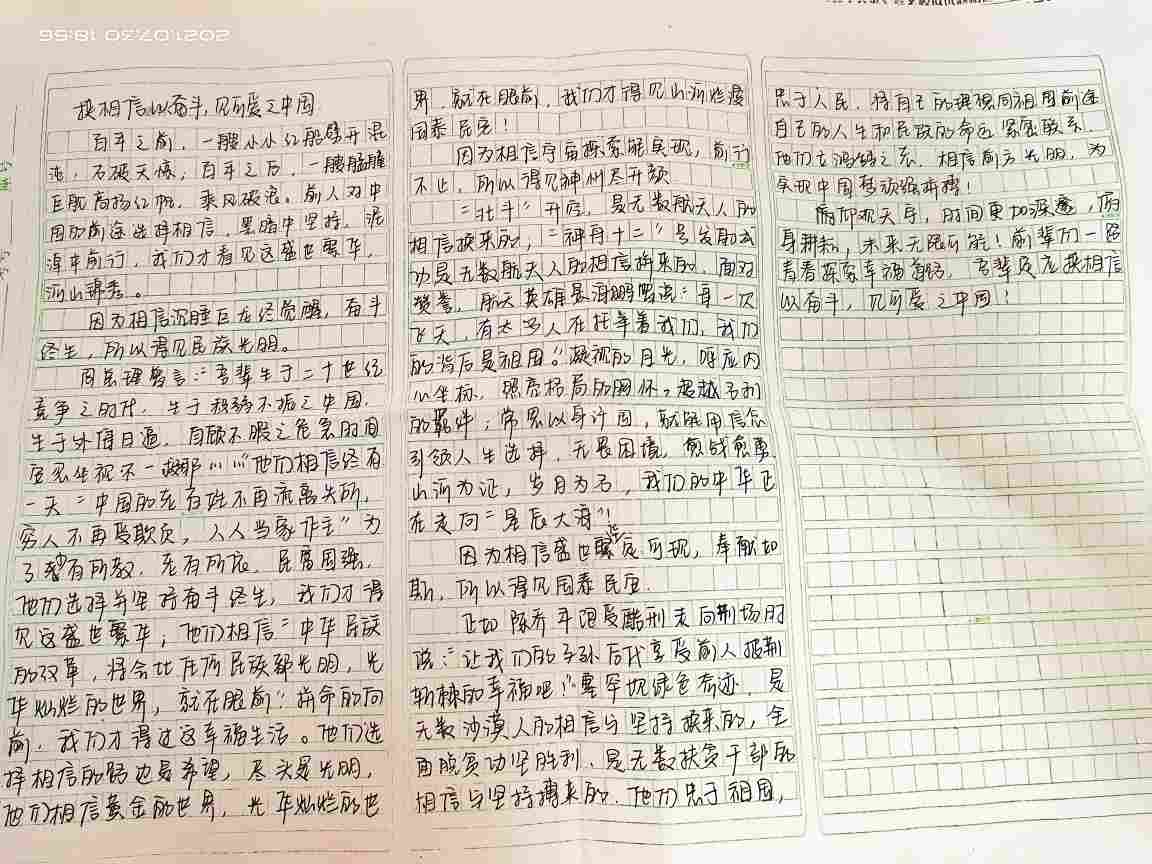 2021.07.30 18:56
换相信以奋斗,见可爱之中国
百年之前,一艘小小红船劈开混
沌,石破天惊,百年之后,一艘艨艟
巨舰高扬红帆,乘风破浪。前人对中
国的前途选择相信,黑暗中坚持,泥
泞中前行,我们才看见这盛世繁华,
河山锦秀。
因为相信沉睡巨龙终觉醒,奋斗
终生,所以得见民族光明。
周总理曾言:“吾辈生于二十世纪
竞争之时代,生于积弱不振之中国,
生于外侮日逼,自顾不暇之危急时间
安忍坐视不一救耶……”他们相信终有
一天“中国的老百姓不再流离失所,
穷人不再受欺负,人人当家作主”为
了幼有所教,老有所依,民富国强,
他们选择并坚持奋斗终生,我们才得
见这盛世繁华;他们相信“中华民族
的改革,将会比任何民族都光明,光
华灿烂的世界,就在眼前”拚命的向
前,我们才得过这幸福生活。他们选
择相信的路边是希望,尽头是光明,
他们相信黄金的世界,光华灿烂的世
界,就在眼前,我们才得见山河烂漫
国泰民安!
因为相信宇宙探索能实现,前行
不止,所以得见神州尽开颜
“北斗”开启,是无数航天人的
相信换来的,“神舟十二”号发射成
功是无数航天人的相信换来的,面对
赞誉,航天英雄景海鹏曾说:“每一次
飞天,有太多人在托举着我们,我们
的背后是祖国。”凝视的月光,呼应内
心坐标,照亮格局的胸怀。超越名利
的羁绊,常思以身许国,就能用信念
引领人生选择,无畏困境,愈战愈勇
山河为证,岁月为名,我们的中华正
在走向“星辰大海”!
因为相信盛世繁花可现,奉献如
斯,所以得见国泰民安.
正如陈乔年退受酷刑走向刑场时
说:“让我们的子孙后代享受前人披荆
斩棘的幸福吧!”塞罕坝绿色奇迹,是
无数沙漠人的相信与坚持换来的,全
面脱贫攻坚胜利,是无数扶贫干部的
相信与坚持搏来的,他们忠于祖国,
忠于人民,将自己的理想同祖国前途
自己的人生和民族的命运紧密联系.
他们立鸿鹄之志,相信前方光明,为
实现中国梦顽强拼搏!
俯仰观天宇,时间更加深邃,厉
身耕耘,未来无限可能!前辈们一路
青春探索幸福前路,吾辈负应换相信
以奋斗,见可爱之中国!